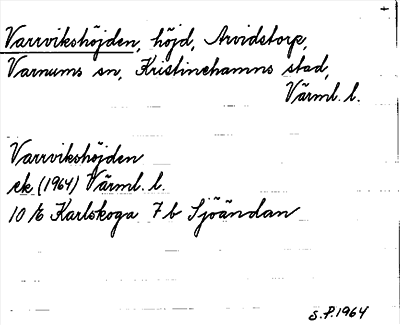 Varrvikshöjden, höjd, Arvidstorp,
Varnums sn, Kristinehamns stad,
Värml. l.
Varrvikshöjden
ek (1964) Värml. l.
10 E Karlskoga 7 b Sjöändan
S.P. 1964